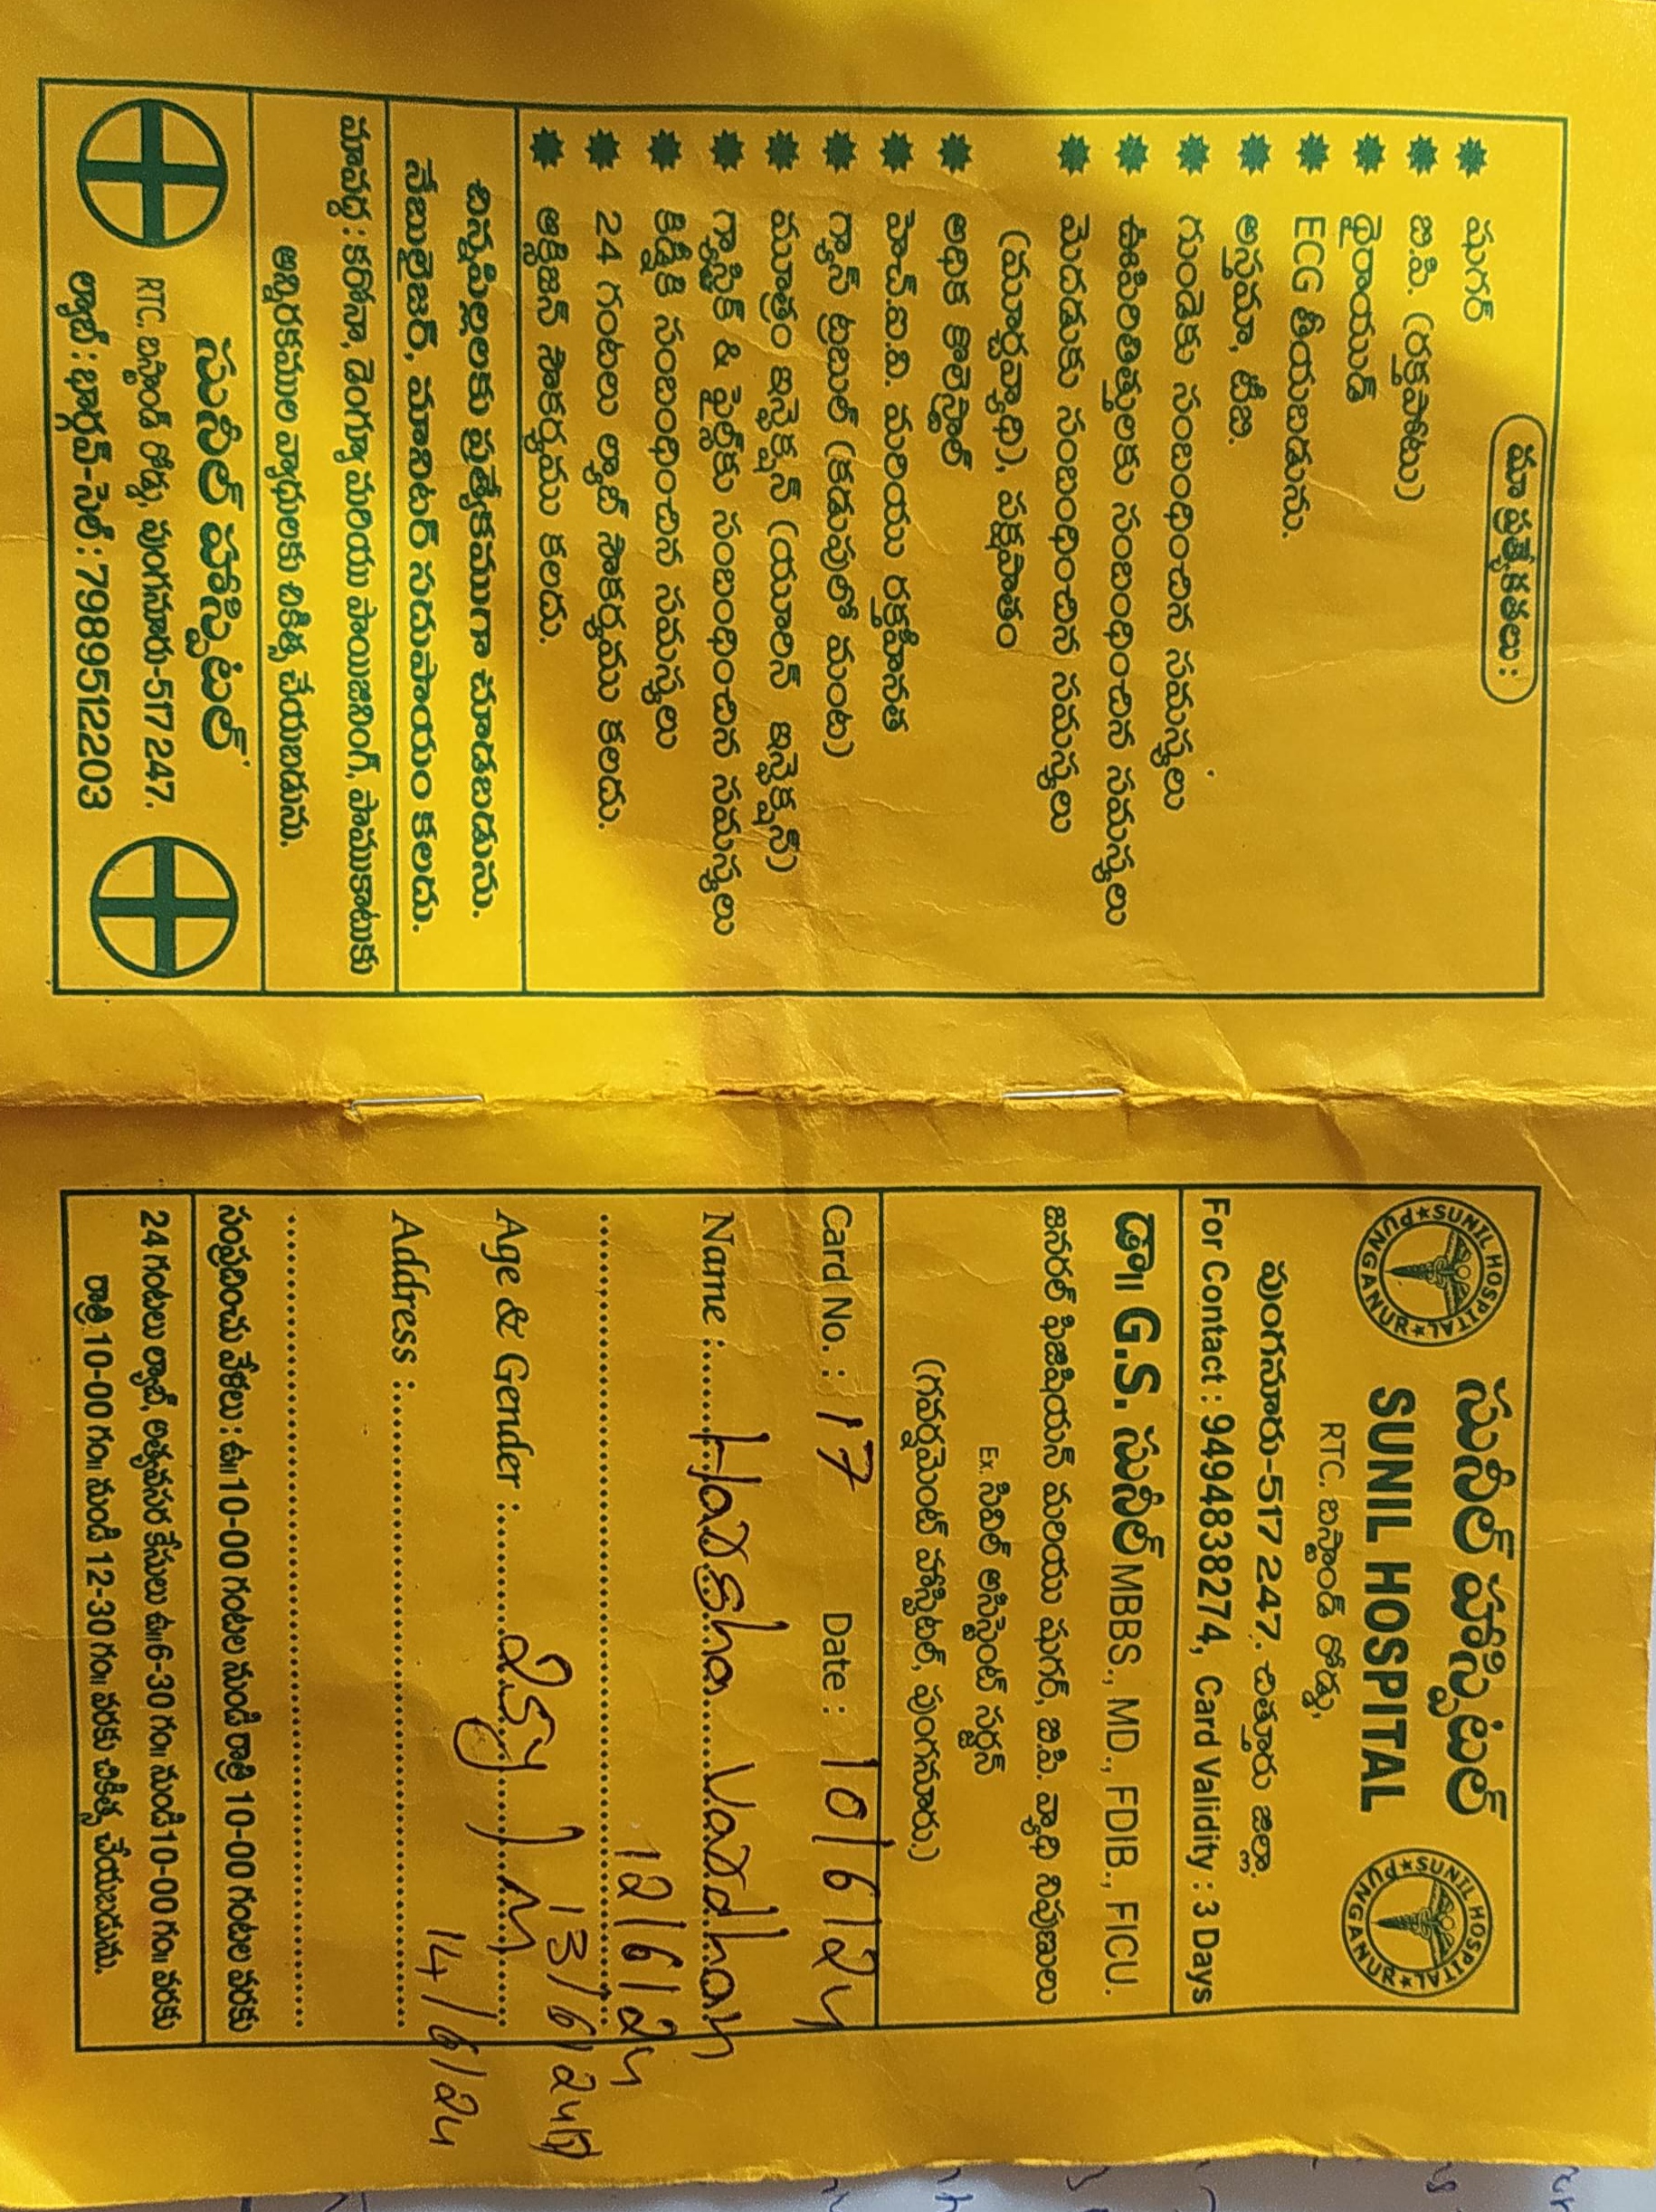 మా ప్రత్యేకతలు :
షుగర్
బి.పి. (రక్తపోటు)
థైరాయిడ్
ECG తీయబడును.
ఆస్తమా, టి.బి.
గుండెకు సంబంధించిన సమస్యలు
ఊపిరితిత్తులకు సంబంధించిన సమస్యలు
మెదడుకు సంబంధించిన సమస్యలు
(మూర్ఛవ్యాధి), పక్షవాతం
అధిక కొలెస్ట్రాల్
హెచ్.ఐ.వి. మరియు రక్తహీనత
గ్యాస్ ట్రబుల్ (కడుపులో మంట)
మూత్రం ఇన్ఫెక్షన్ (యూరిన్ ఇన్ఫెక్షన్)
గ్యాస్ట్రిక్ & పైల్స్‌కు సంబంధించిన సమస్యలు
కిడ్నీకి సంబంధించిన సమస్యలు
24 గంటలు ల్యాబ్ సౌకర్యము కలదు.
ఆక్సిజన్ సౌకర్యము కలదు.
చిన్నపిల్లలకు ప్రత్యేకముగా చూడబడును.
నెబులైజర్, మానిటర్ సదుపాయం కలదు.
మావద్ద : కరోనా, డెంగ్యూ మరియు పాయిజనింగ్, పాముకాటుకు
అన్నిరకముల వ్యాధులకు చికిత్స చేయబడును.
సునీల్ హాస్పిటల్
RTC. బస్టాండ్ రోడ్డు, పుంగనూరు-517 247.
ల్యాబ్ : భార్గవ్-సెల్ : 7989512203
★SUNIL HOSPITAL★PUNGANUR
సునీల్ హాస్పిటల్
SUNIL HOSPITAL
★SUNIL HOSPITAL★PUNGANUR
RTC. బస్టాండ్ రోడ్డు,
పుంగనూరు-517 247. చిత్తూరు జిల్లా.
For Contact : 9494838274, Card Validity : 3 Days
డా॥ G.S. సునీల్ MBBS., MD., FDIB., FICU.
జనరల్ ఫిజిషియన్ మరియు షుగర్, బి.పి. వ్యాధి నిపుణులు
Ex. సివిల్ అసిస్టెంట్ సర్జన్
(గవర్నమెంట్ హాస్పిటల్, పుంగనూరు.)
Card No. : 17 Date : 10/6/24
Name : Harsha Vardhan
12/6/24
Age & Gender : 25y / M 13/6/24
Address : 14/6/24
సంప్రదించు వేళలు : ఉ॥10-00 గంటల నుండి రాత్రి 10-00 గంటల వరకు
24 గంటలు ల్యాబ్, అత్యవసర కేసులు ఉ॥6-30 గం॥ నుండి 10-00 గం॥ వరకు
రాత్రి 10-00 గం॥ నుండి 12-30 గం॥ వరకు చికిత్స చేయబడును.